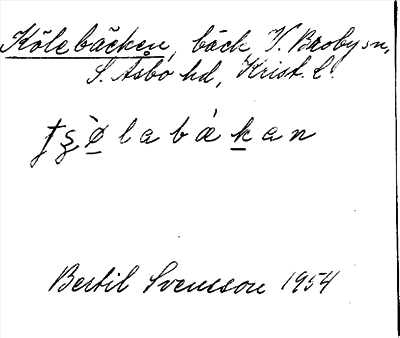 Kölebäcken, bäck V. Broby sn,
S. Åsbo hd, Krist. l.
Bertil Svensson 1954